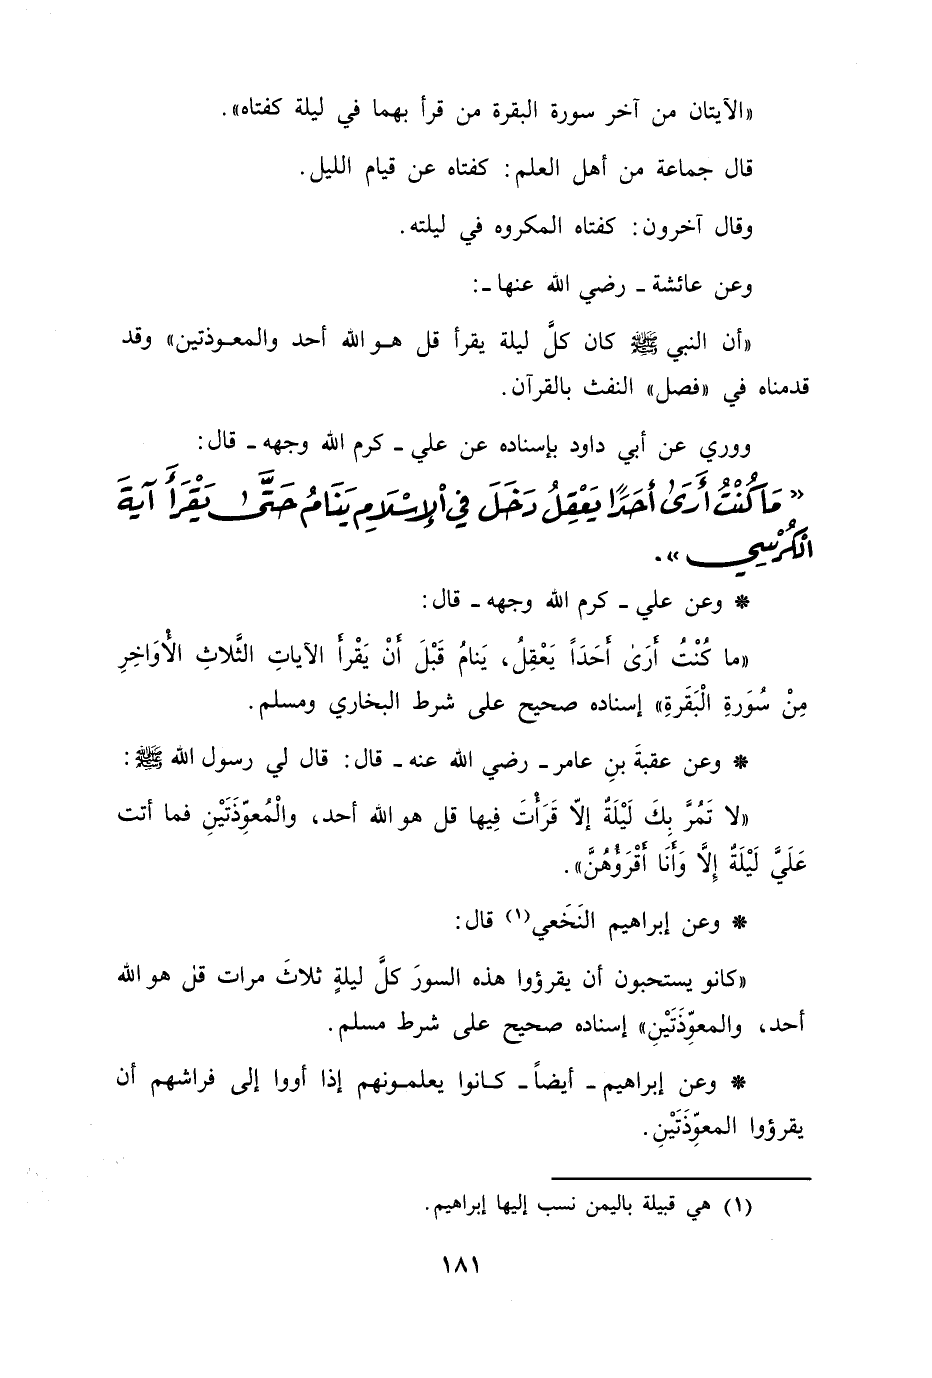 «الآيتان من آخر سورة البقرة من قرأ بهما في ليلة كفتاه».
قال جماعة من أهل العلم: كفتاه عن قيام الليل.
وقال آخرون: كفتاه المكروه في ليلته.
وعن عائشة ـ رضي الله عنها ـ:
«أن النبي ﷺ كان كلَّ ليلة يقرأ قل هـو الله أحد والمعـوذتين» وقد
قدمناه في «فصل» النفث بالقرآن.
ووري عن أبي داود بإسناده عن علي ـ كرم الله وجهه ـ قال:
«مَا كُنْتُ أَرَىٰ أحَدًا يَعْقِلُ دَخَلَ في الإسْلَامِ يَنَامُ حَتَّىٰ يَقْرَأَ آيَةَ
الكُرْسِي».
* وعن علي ـ كرم الله وجهه ـ قال:
«ما كُنْتُ أَرَىٰ أَحَدَاً يَعْقِلُ، يَنامُ قَبْلَ أَنْ يَقْرأَ الآياتِ الثَّلاثِ الأَوَاخِرِ
مِنْ سُوَرةِ الْبَقَرةِ» إسناده صحيح على شرط البخاري ومسلم.
* وعن عقبةَ بنِ عامر ـ رضي الله عنه ـ قال: قال لي رسول الله ﷺ:
«لا تَمُرَّ بِكَ لَيْلَةٌ إلاّ قَرَأْتَ فِيها قل هو الله أحد، والْمُعوِّذَتَيْنِ فما أتت
عَلَيَّ لَيْلَةٌ إِلاَّ وَأَنَا أَقْرَؤُهُنَّ».
* وعن إبراهيم النَخَعي(١) قال:
«كانو يستحبون أن يقرؤوا هذه السورَ كلَّ ليلةٍ ثلاثَ مرات قل هو الله
أحد، والمعوِّذَتَيْنِ» إسناده صحيح على شرط مسلم.
* وعن إبراهيم ـ أيضاً ـ كـانوا يعلمـونهم إذا أووا إلى فراشهم أن
يقرؤوا المعوِّذَتَيْنِ.
(١) هي قبيلة باليمن نسب إليها إبراهيم.
١٨١